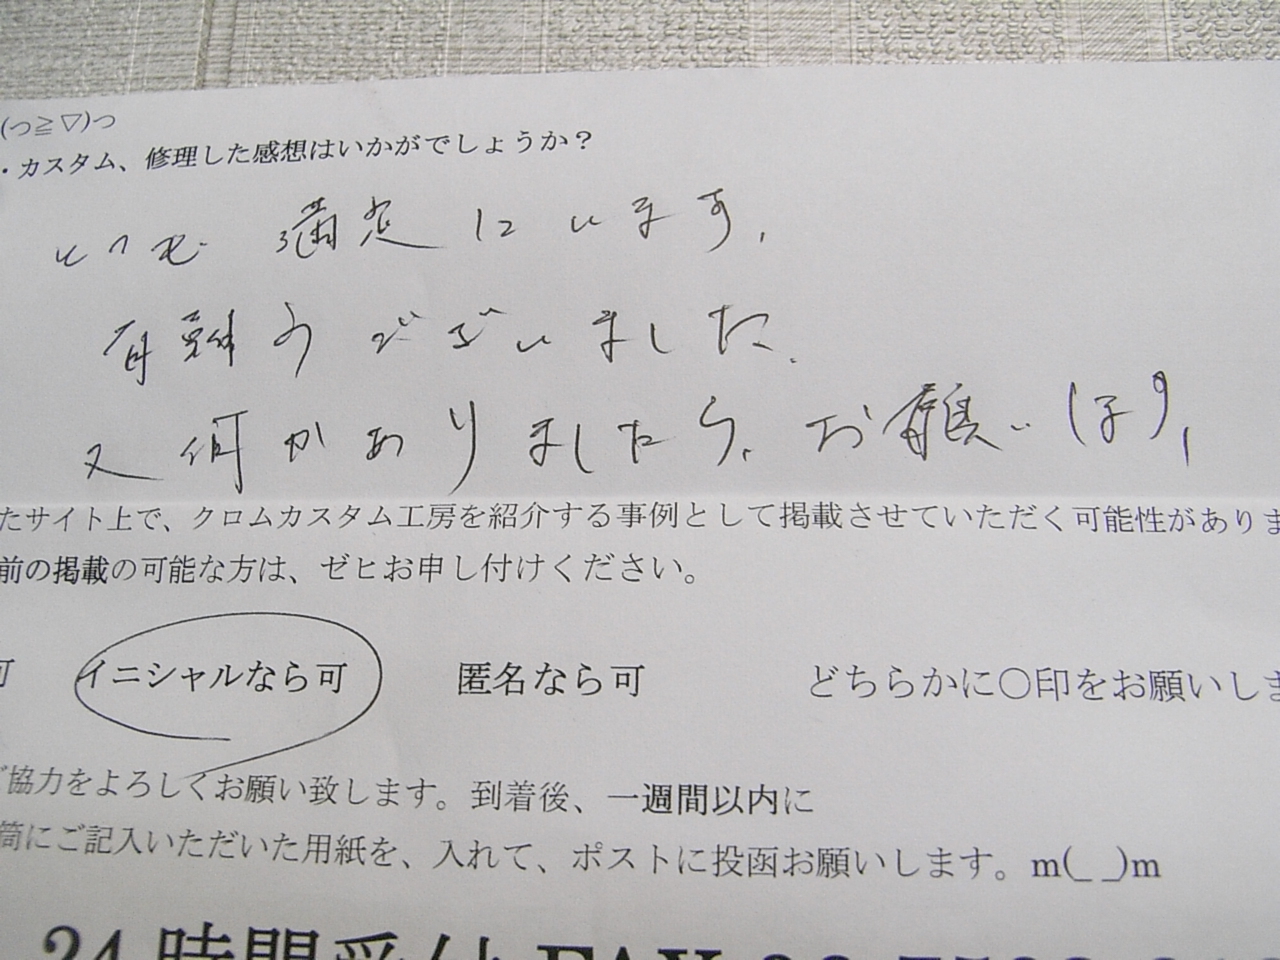 (つ≧▽)つ
・カスタム、修理した感想はいかがでしょうか？
とても 満足しています。
有難うございました。
又何かありましたら、お願いします。
たサイト上で、クロムカスタム工房を紹介する事例として掲載させていただく可能性がありま
前の掲載の可能な方は、ゼヒお申し付けください。
可 イニシャルなら可 匿名なら可 どちらかに〇印をお願いしま
ご協力をよろしくお願い致します。到着後、一週間以内に
筒にご記入いただいた用紙を、入れて、ポストに投函お願いします。m(_ _)m
24時間受付 FAX